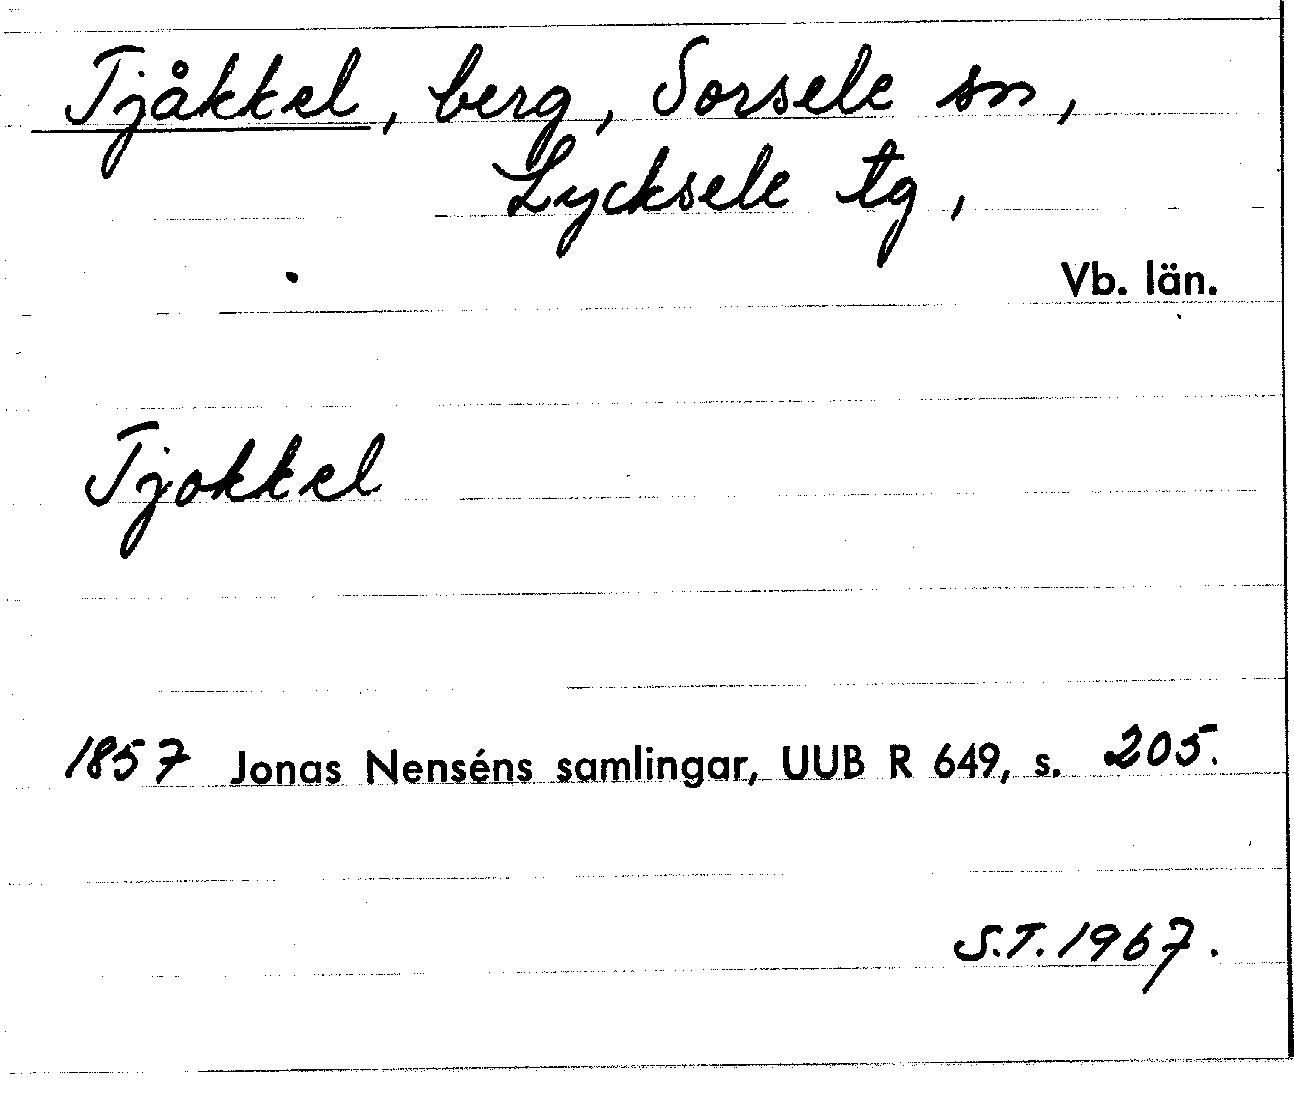 Tjåkkel, berg, Sorsele sn,
Lycksele tg,
Vb. län.
Tjokkel
1857 Jonas Nenséns samlingar, UUB R 649, s. 205.
S.T. 1967.